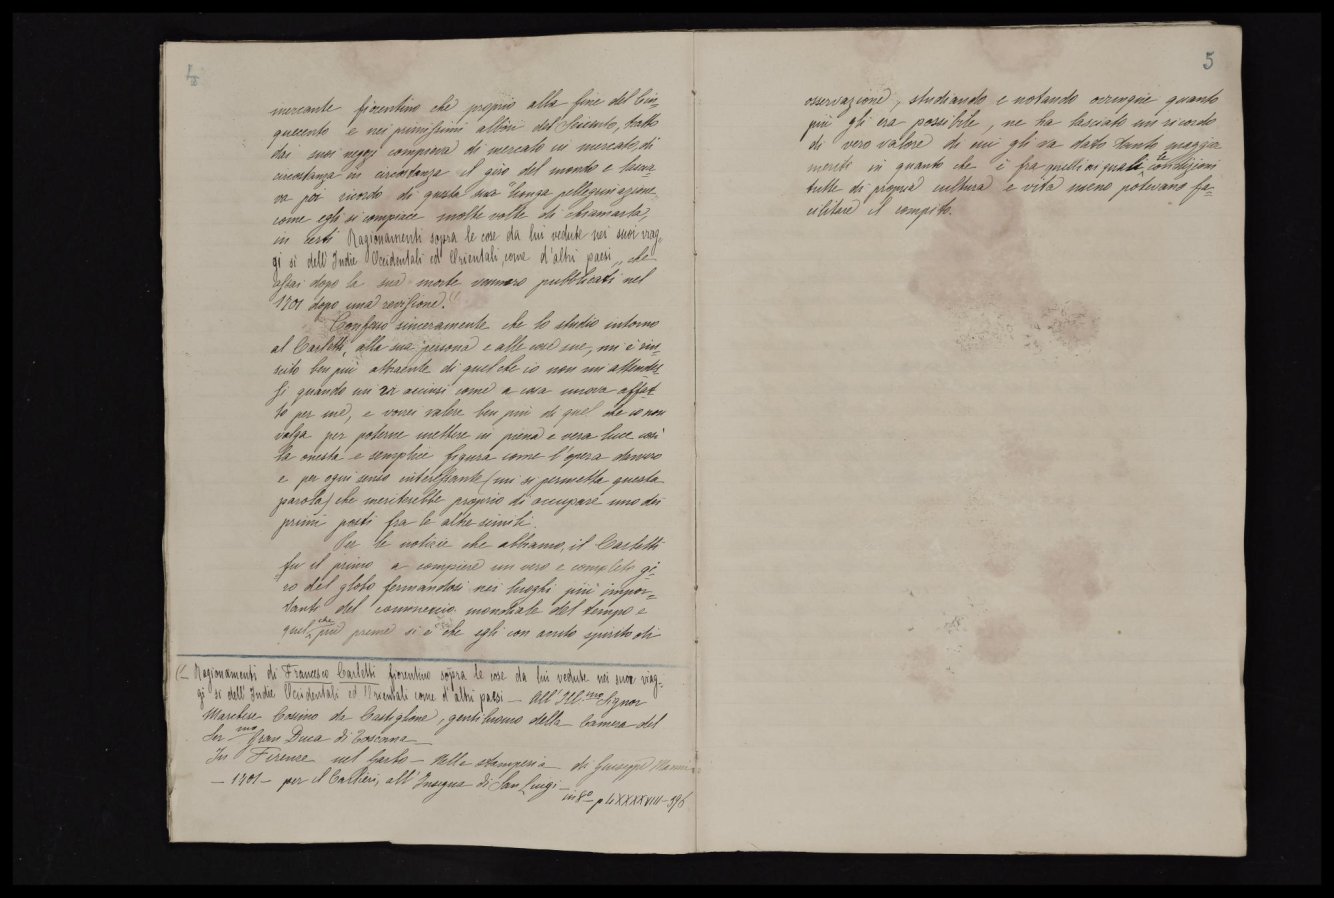 4
mercante fiorentino che proprio alla fine del Cin-
quecento e nei primissimi albori del Seicento, tratto
dai suoi negozi comprava di mercato in mercato, di
circostanza in circostanza il giro del mondo e lascia-
va poi ricordo di questa sua lunga pellegrinazione
come egli si compiace molte volte di chiamarla,
in certi Ragionamenti sopra le cose da lui vedute nei suoi viag-
gi sì dell'Indie Occidentali ed Orientali, come d'altri paesi „ che
assai dopo la sua morte vennero pubblicati nel
1701 dopo una revisione. (1
Confesso sinceramente che lo studio intorno
al Carletti, alla sua persona e alle cose sue, mi è riu-
scito ben più attraente di quel che io non mi attendes-
si quando mi vi accinsi come a cosa nuova affat-
to per me, e vorrei valere ben più di quel che io non
valga per poterne mettere in piena e vera luce così
la onesta e semplice figura come l'opera davvero
e per ogni senso interessante (mi si permetta questa
parola) che meriterebbe proprio di occupare uno dei
primi posti fra le altre simili.
Per le notizie che abbiamo, il Carletti
fu il primo a compiere un vero e completo gi-
ro del globo fermandosi nei luoghi più impor-
tanti del commercio mondiale del tempo e
quel che più preme si è che egli con acuto spirito di
(1 Ragionamenti di Francesco Carletti fiorentino sopra le cose da lui vedute nei suoi viag-
gi sì dell'Indie Occidentali ed Orientali come d'altri paesi – All'Ill.mo Signor
Marchese Cosimo da Castiglione, gentiluomo della Camera del
Ser.mo Gran Duca di Toscana –
In Firenze nel Garbo – Nella stamperia di Giuseppe Manni
– 1701 – per il Carlieri, all'Insegna di San Luigi –
in 8o p. XXXXVIII–396
5
osservazione, studiando e notando ovunque quanto
più gli era possibile, ne ha lasciato un ricordo
di vero valore di cui gli va dato tanto maggior
merito in quanto che è fra quelli cui quali le condizioni
tutte di propria cultura e vita meno potevano fa-
cilitare il compito.